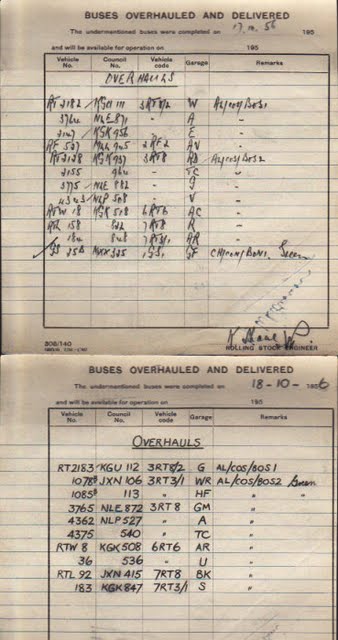 BUSES OVERHAULED AND DELIVERED
The undermentioned buses were completed on 17.10.56 195
and will be available for operation on 195
Vehicle No. Council No. Vehicle code Garage Remarks
OVERHAULS
RT 2182 KGU 111 3RT8/2 W AL/COS/BOS1
NLE 871 - A -
KGK 956 - E -
RF 527 2RF2 AV -
3RT8 AL/COS/BOS2
2155 - TC -
3775 NLE 882 - -
4343 NLP 508 - V -
RTW 18 KGK 518 6RT6 AC -
158 7RT8 R -
7RT3/1 AR -
GS 25B MXX 325 1GS1 GF Green
ROLLING STOCK ENGINEER
806/140
BUSES OVERHAULED AND DELIVERED
The undermentioned buses were completed on 18-10-1956
and will be available for operation on 195
Vehicle No. Council No. Vehicle code Garage Remarks
OVERHAULS
RT2183 KGU 112 3RT8/2 G AL/COS/BOS1
1078B JXN 106 3RT3/1 WR AL/COS/BOS2 Green
1085B 113 " HF " "
3765 NLE 872 3RT8 GM "
4362 NLP 527 " A "
4375 540 " TC "
RTW 8 KGK 508 6RT6 AR "
36 536 " U "
RTL 92 JXN 415 7RT8 BK "
183 KGK 847 7RT3/1 S "